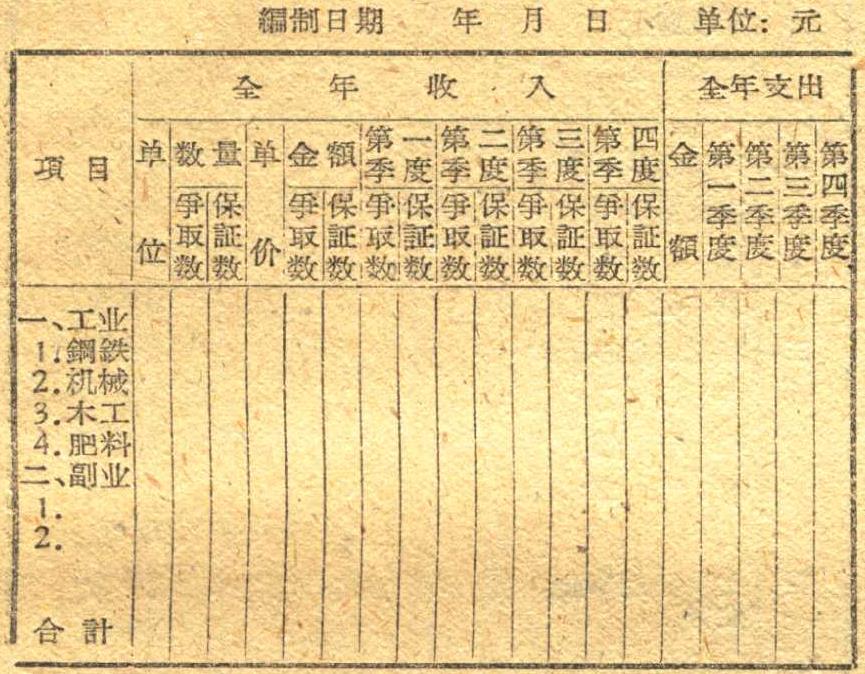 編制日期 年 月 日 单位: 元
項目 全年收入 全年支出
单位 数量 单价 金額 第一季度 第二季度 第三季度 第四季度 金額 第一季度 第二季度 第三季度 第四季度
爭取数 保証数 爭取数 保証数 爭取数 保証数 爭取数 保証数 爭取数 保証数 爭取数 保証数
一、工业
1.鋼鉄
2.机械
3.木工
4.肥料
二、副业
1.
2.
合計